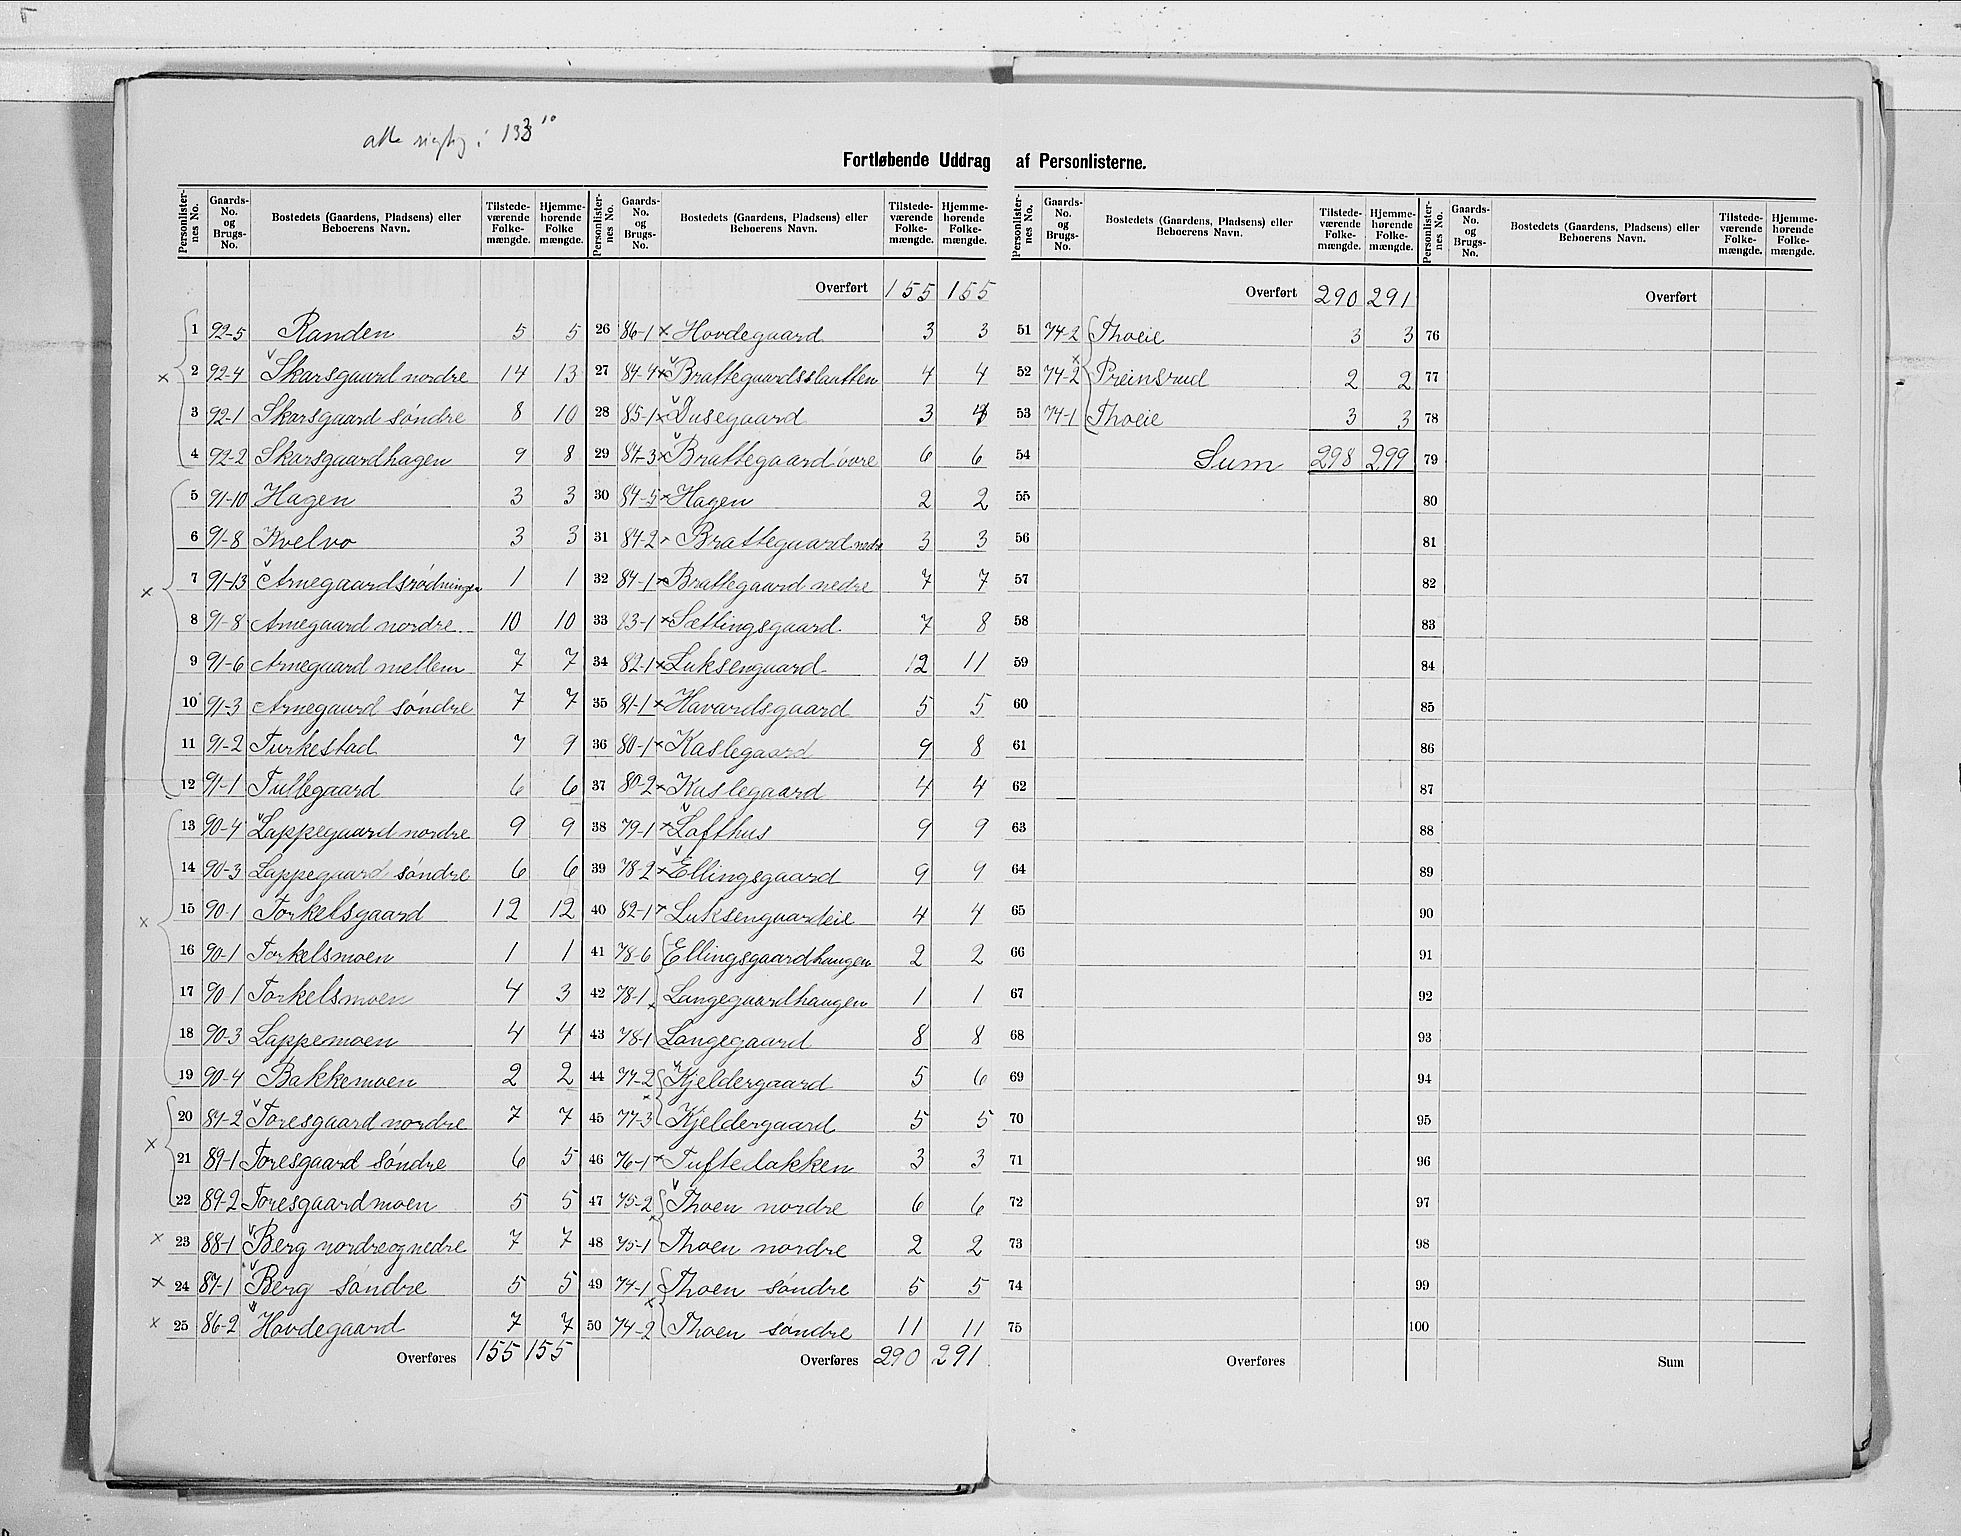 alle rigtig i 133 10
Fortløbende Uddrag af Personlisterne.
Personlister-nes No. Gaards-No. og Brugs-No. Bostedets (Gaardens, Pladsens) eller Beboerens Navn. Tilstede-værende Folke-mængde. Hjemme-hørende Folke mængde.
1 92-5 Randen 5 5
2 92-4 Skarsgaard nordre 14 13
3 92-1 Skarsgaard søndre 8 10
4 92-2 Skarsgaardhagen 9 8
5 91-10 Hagen 3 3
6 91-8 Kvelvo 3 3
7 91-13 Arnegaardsrødningen 1 1
8 91-8 Arnegaard nordre 10 10
9 91-6 Arnegaard mellem 7 7
10 91-3 Arnegaard søndre 7 7
11 91-2 Turkestad 7 9
12 91-1 Tullegaard 6 6
13 90-4 Lappegaard nordre 9 9
14 90-3 Lappegaard søndre 6 6
15 90-1 Torkelsgaard 12 12
16 90-1 Torkelsmoen 1 1
17 90-1 Torkelsmoen 4 3
18 90-3 Lappemoen 4 4
19 90-4 Bakkemoen 2 2
20 89-2 Toresgaard nordre 7 7
21 89-1 Toresgaard søndre 6 5
22 89-2 Toresgaardmoen 5 5
23 88-1 Berg nordre og nedre 7 7
24 87-1 Berg søndre 5 5
25 86-2 Hovdegaard 7 7
Overføres 155 155
Personlister-nes No. Gaards-No. og Brugs-No. Bostedets (Gaardens, Pladsens) eller Beboerens Navn. Tilstede-værende Folke-mængde. Hjemme-hørende Folke-mængde.
Overført 155 155
26 86-1 x Hovdegaard 3 3
27 84-4 x Brattegaardsslaatten 4 4
28 85-1 x Dusegaard 3 4
29 84-3 x Brattegaard øvre 6 6
30 84-5 x Hagen 2 2
31 84-2 x Brattegaard nedre 3 3
32 84-1 x Brattegaard nedre 7 7
33 83-1 x Sættingsgaard 7 8
34 82-1 x Luksengaard 12 11
35 81-1 x Havardsgaard 5 5
36 80-1 x Kaslegaard 9 8
37 80-2 x Kaslegaard 4 4
38 79-1 x Lofthus 9 9
39 78-2 x Ellingsgaard 9 9
40 82-1 x Luksengaardeie 4 4
41 78-6 Ellingsgaardhaugen 2 2
42 78-1 Langegaardhaugen 1 1
43 78-1 Langegaard 8 8
44 77-2 Kjeldergaard 5 6
45 77-3 Kjeldergaard 5 5
46 76-1 x Tufteslakken 3 3
47 75-2 Thoen nordre 6 6
48 75-1 Thoen nordre 2 2
49 74-1 Thoen søndre 5 5
50 74-2 Thoen søndre 11 11
Overføres 290 291
Personlister-nes No. Gaards-No. og Brugs-No. Bostedets (Gaardens, Pladsens) eller Beboerens Navn. Tilstede-værende Folke-mængde. Hjemme-hørende Folke-mængde.
Overført 290 291
51 74-2 Thoeie 3 3
52 74-2 Preinsrud 2 2
53 74-1 Thoeie 3 3
54 Sum 298 299
55
56
57
58
59
60
61
62
63
64
65
66
67
68
69
70
71
72
73
74
75
Overføres
Personlister-nes No. Gaards-No. og Brugs-No. Bostedets (Gaardens, Pladsens) eller Beboerens Navn. Tilstede-værende Folke-mængde. Hjemme-hørende Folke-mængde.
Overført
76
77
78
79
80
81
82
83
84
85
86
87
88
89
90
91
92
93
94
95
96
97
98
99
100
Sum